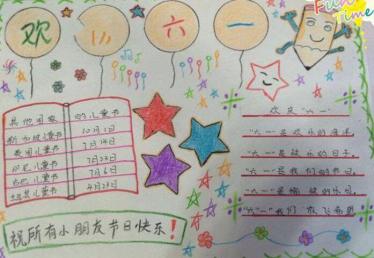 Fun
Time
欢 六 一
其他国家 的儿童节
新加坡儿童节 10月1日
7月14日
儿童节 7月23日
巴巴儿童节 7月6日
儿童节 4月23日
祝所有小朋友节日快乐！
欢庆"六一"
"六一"是欢乐的海洋
"六一"是快乐的日子。
"六一"是我们的节日。
"六一"是愉快的乐园。
"六一"我们放飞希望